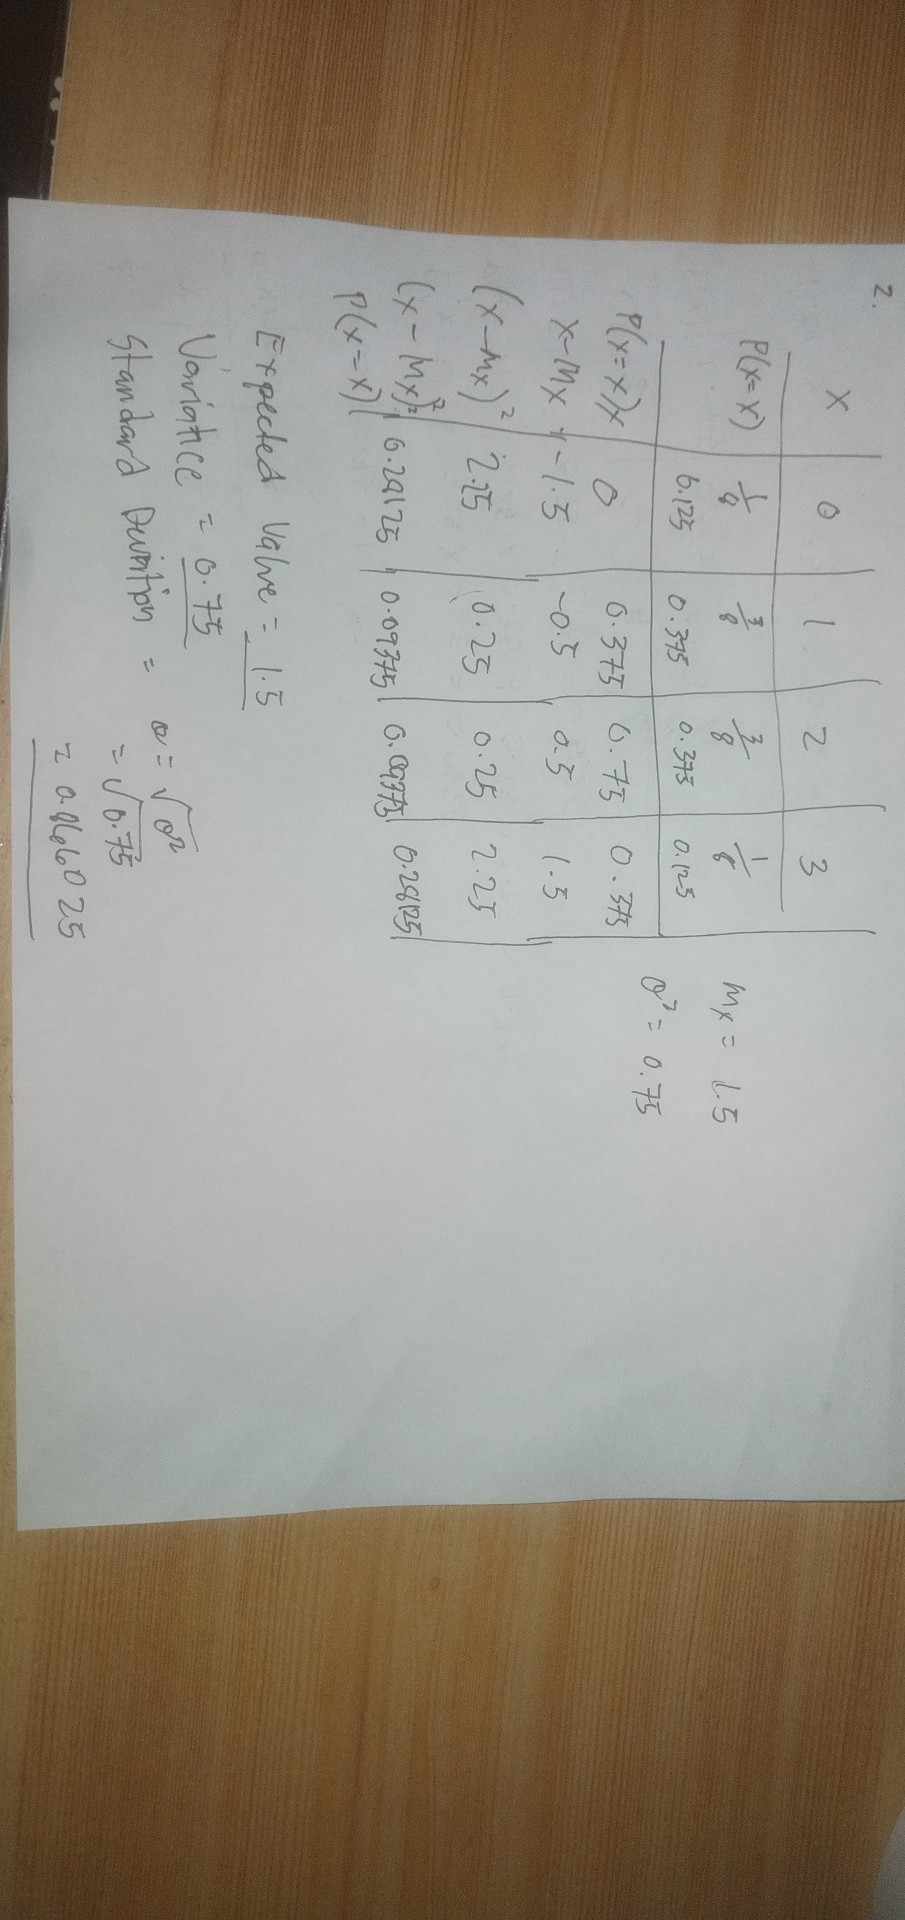 2.
X 0 1 2 3
P(X=X) 1/8 3/8 3/8 1/8
0.125 0.375 0.375 0.125
P(X=x)x 0 0.375 0.75 0.375
X-Mx -1.5 -0.5 0.5 1.5
(X-Mx)² 2.25 0.25 0.25 2.25
(X-Mx)² 0.28125 0.09375 0.09375 0.28125
P(X=X)
Mx = 1.5
σ² = 0.75
Expected Value = 1.5
Variance = 0.75
Standard Deviation =
σ = √σ²
= √0.75
= 0.866025